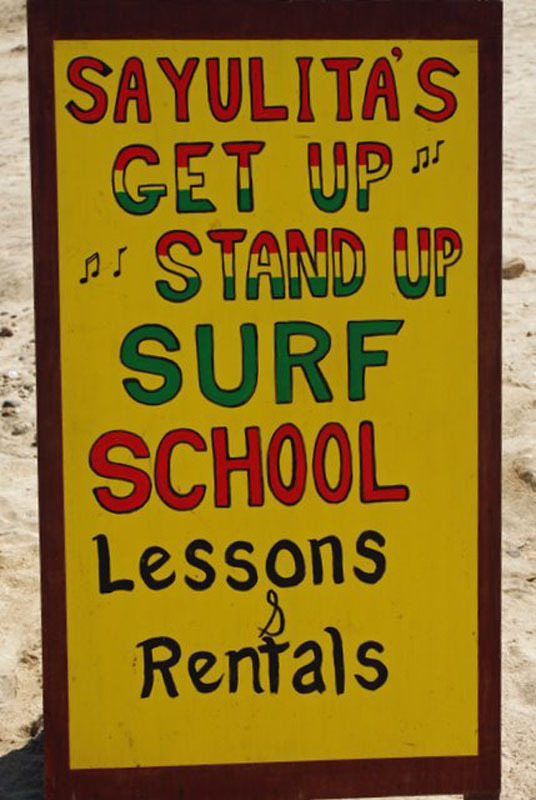 SAYULITA'S
GET UP
STAND UP
SURF
SCHOOL
Lessons
&
Rentals